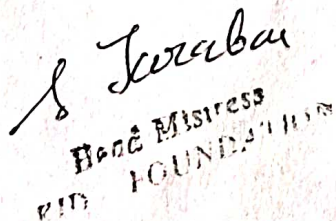 S Tarabai
Head Mistress
FOUNDATION